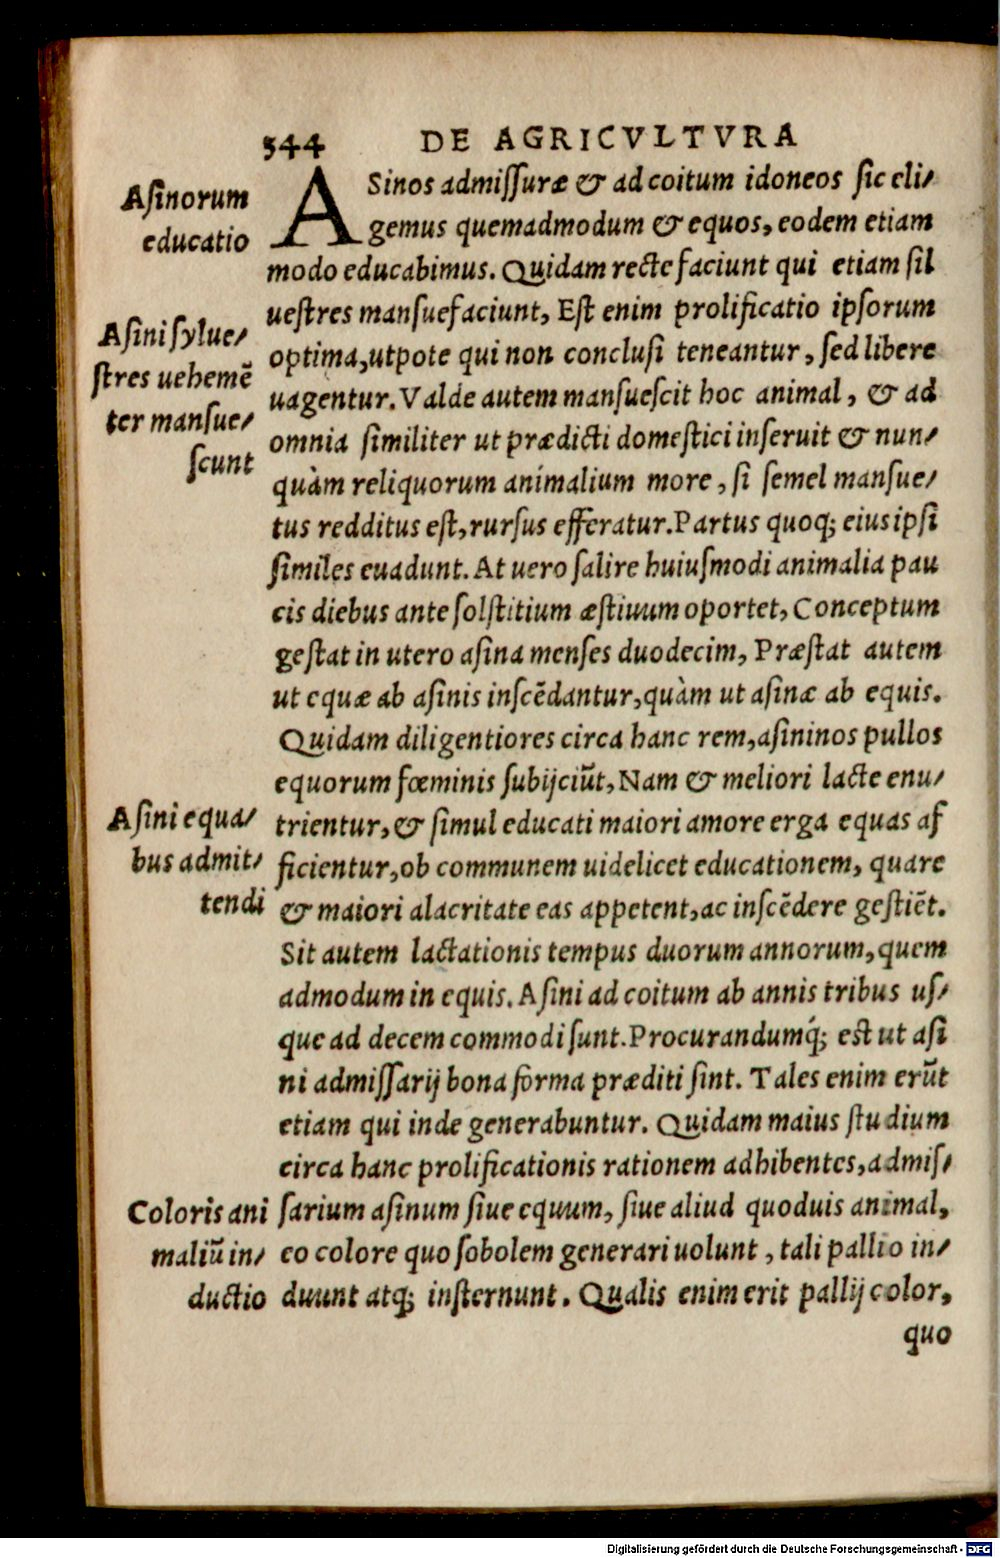 544 DE AGRICVLTVRA
Aſinorum
educatio
ASinos admiſſuræ & ad coitum idoneos ſic eli/
gemus quemadmodum & equos, eodem etiam
modo educabimus. Quidam recte faciunt qui etiam ſil
ueſtres manſuefaciunt, Eſt enim prolificatio ipſorum
Aſini ſylue/
ſtres uehemẽ
ter manſue/
ſcunt
optima,utpote qui non concluſi teneantur, ſed libere
uagentur. Valde autem manſueſcit hoc animal, & ad
omnia ſimiliter ut prædicti domeſtici inſeruit & nun/
quàm reliquorum animalium more, ſi ſemel manſue/
tus redditus eſt, rurſus efferatur. Partus quoq; eius ipſi
ſimiles euadunt. At uero ſalire huiuſmodi animalia pau
cis diebus ante ſolſtitium æſtiuum oportet, Conceptum
geſtat in utero aſina menſes duodecim, Præſtat autem
ut equæ ab aſinis inſcẽdantur, quàm ut aſinæ ab equis.
Quidam diligentiores circa hanc rem, aſininos pullos
equorum fœminis ſubijciũt, Nam & meliori lacte enu/
Aſini equa/
bus admit/
tendi
trientur, & ſimul educati maiori amore erga equas af
ficientur, ob communem uidelicet educationem, quare
& maiori alacritate eas appetent, ac inſcẽdere geſtiẽt.
Sit autem lactationis tempus duorum annorum, quem
admodum in equis. Aſini ad coitum ab annis tribus uſ/
que ad decem commodi ſunt. Procurandumq́; eſt ut aſi
ni admiſſarij bona forma præditi ſint. Tales enim erũt
etiam qui inde generabuntur. Quidam maius ſtudium
circa hanc prolificationis rationem adhibentes, admiſ/
Coloris ani
maliũ in/
ductio
ſarium aſinum ſiue equum, ſiue aliud quoduis animal,
eo colore quo ſobolem generari uolunt, tali pallio in/
duunt atq; inſternunt. Qualis enim erit pallij color,
quo
Digitalisierung gefördert durch die Deutsche Forschungsgemeinschaft - DFG